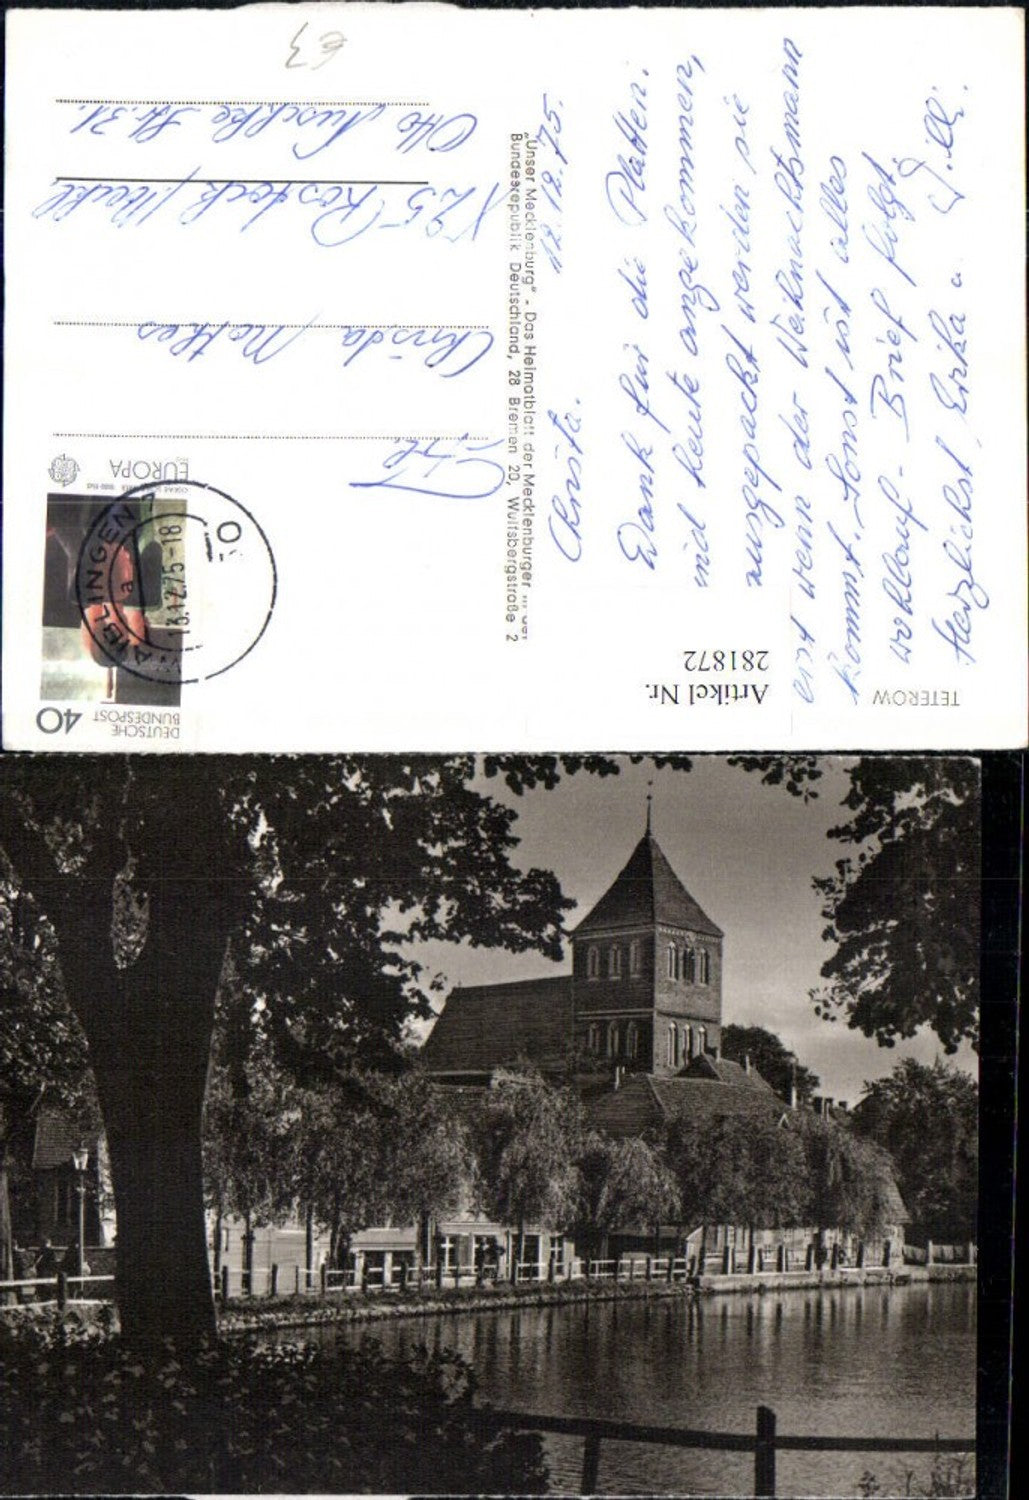 TETEROW
12.12.75.
Christa.
Dank für die Platten.
sind heute angekommen,
ausgepackt werden sie
erst wenn der Weihnachtsmann
kommt. Sonst ist alles
wohlauf - Brief folgt.
Herzlichst, Erika u. Willi.
Artikel Nr.
281872
„Unser Mecklenburg" - Das Heimatblatt der Mecklenburger in der
Bundesrepublik Deutschland, 28 Bremen 20, Wulfsbergstraße 2
DEUTSCHE
BUNDESPOST
40
EUROPA
WAIBLINGEN
a
13.12.75-18
Christa Mathes
X25 Rostock/Meckl.
Otto Nuschke Str. 31.
€3